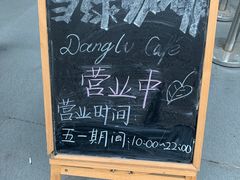 Danglv Café
营业中
营业时间:
五一期间:10:00~22:00